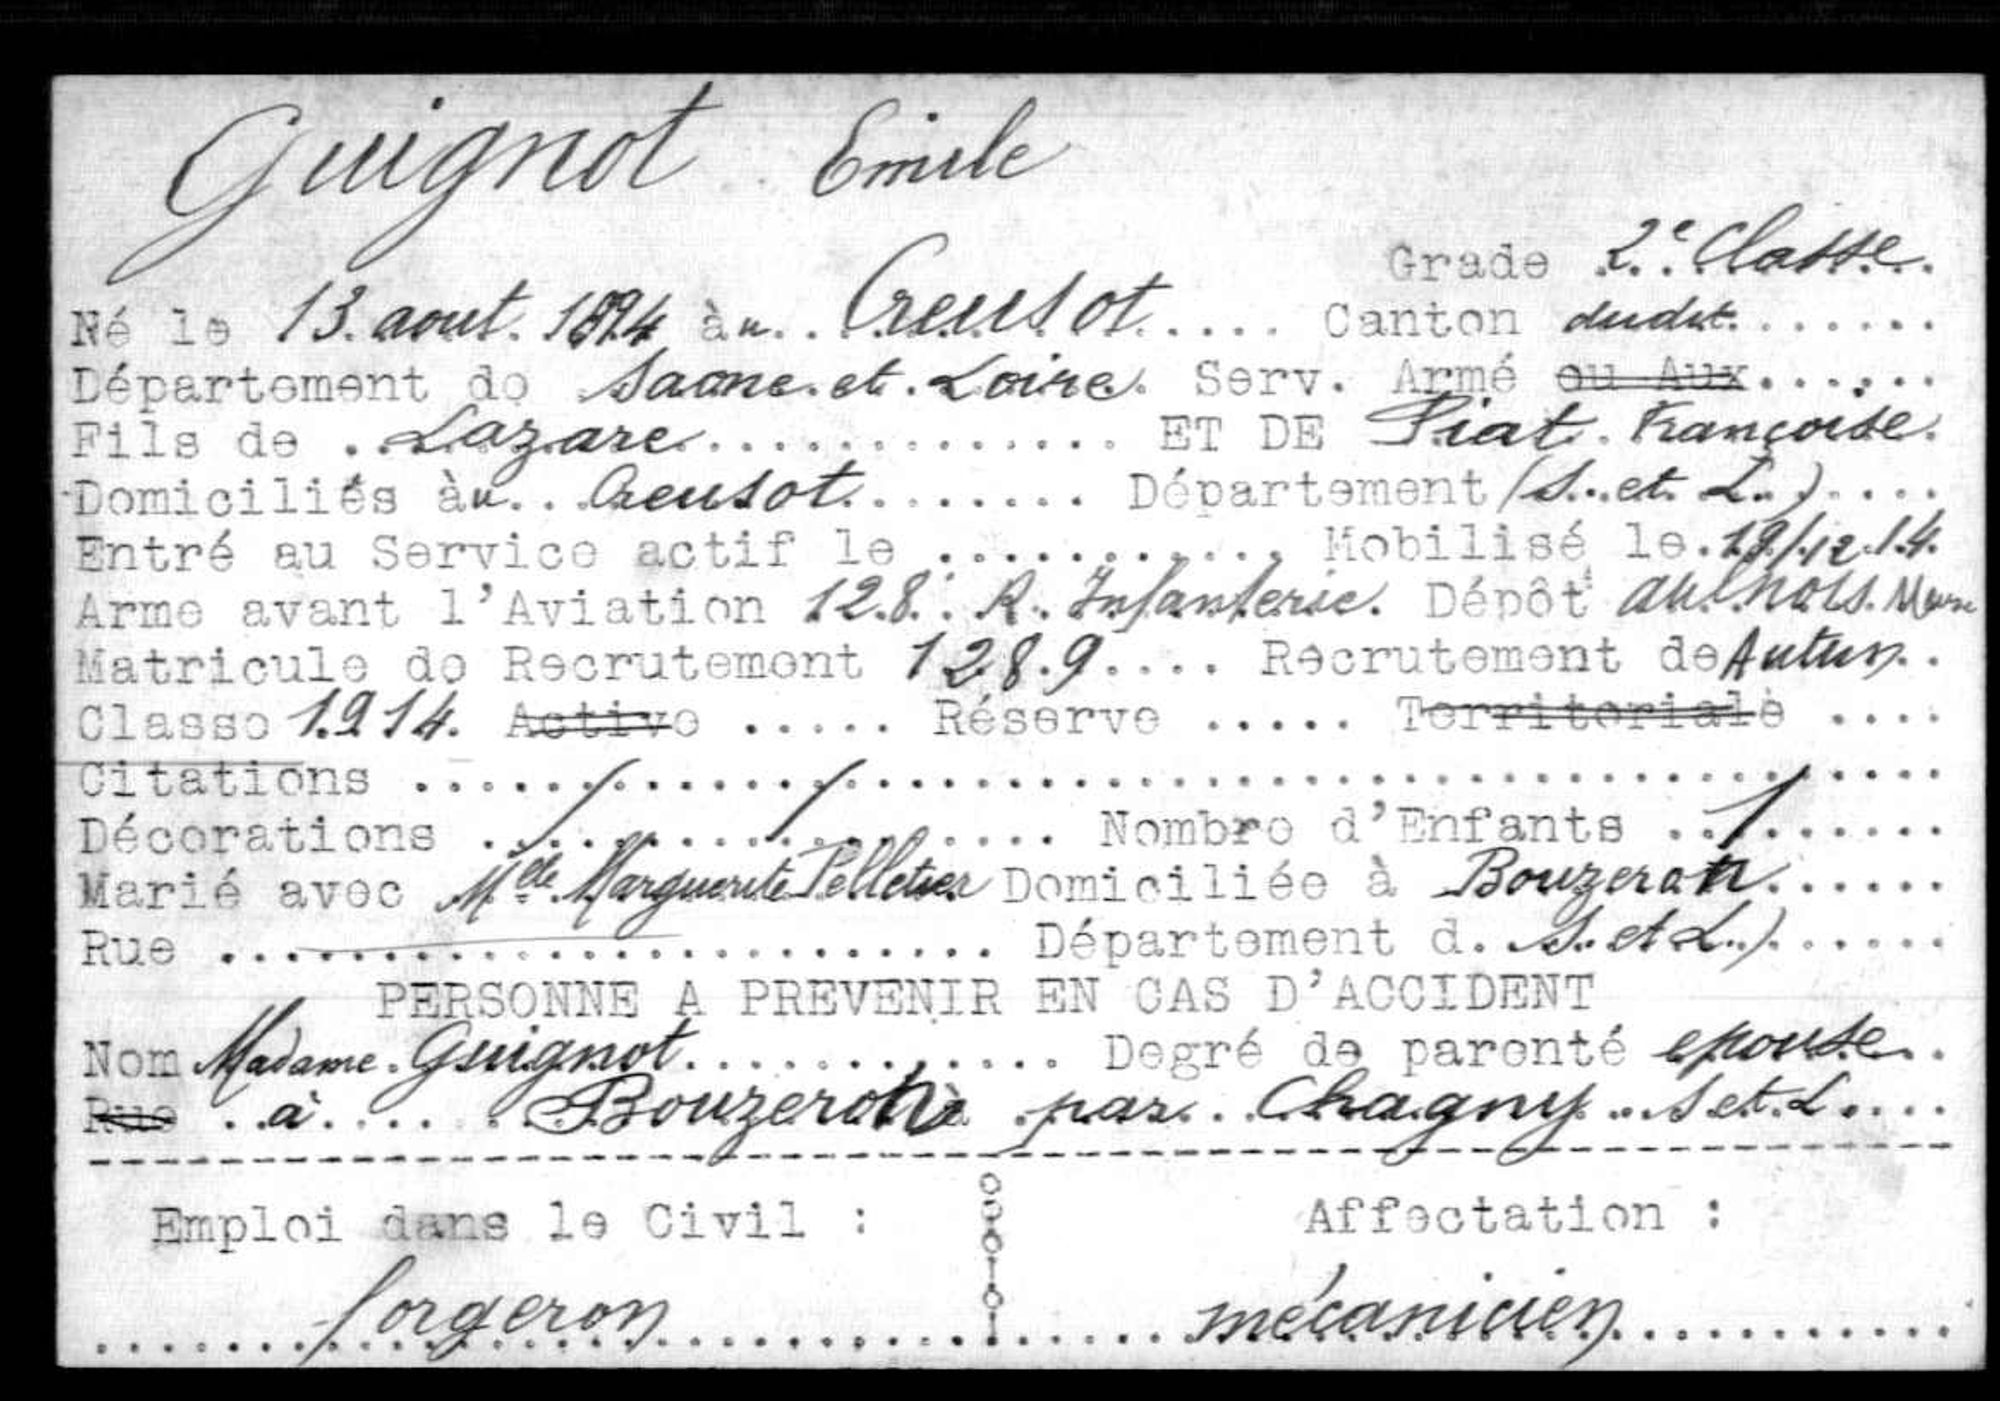 Guignot Emile
Grade 2e Classe
Né le 13 aout 1894 àu Creusot Canton dudit
Département de Saone et Loire Serv. Armé ou Aux
Fils de Lazare ET DE Piat Françoise
Domiciliés àu Creusot Département (S. et L.)
Entré au Service actif le Mobilisé le 19/12 14
Arme avant l'Aviation 128. R. Infanterie. Dépôt aulnois Meuse
Matricule de Recrutement 1289 Recrutement de Autun
Classe 1914. Active Réserve Territoriale
Citations /
Décorations / Nombre d'Enfants 1
Marié avec Mlle Marguerite Pelletier Domiciliée à Bouzeron
Rue Département d. S. et L.)
PERSONNE A PREVENIR EN CAS D'ACCIDENT
Nom Madame Guignot Degré de parenté epouse
Rue à Bouzeron à par Chagny S et L
Emploi dans le Civil : Affectation :
forgeron mécanicien